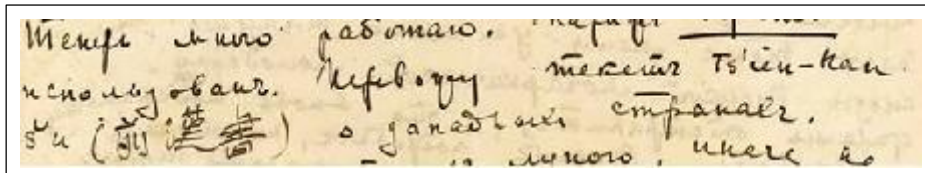 Теперь много работаю.
использовать. Перевожу текстъ Ts'ien-Han
šu (前漢書) о западныхъ странахъ.
много, иначе не